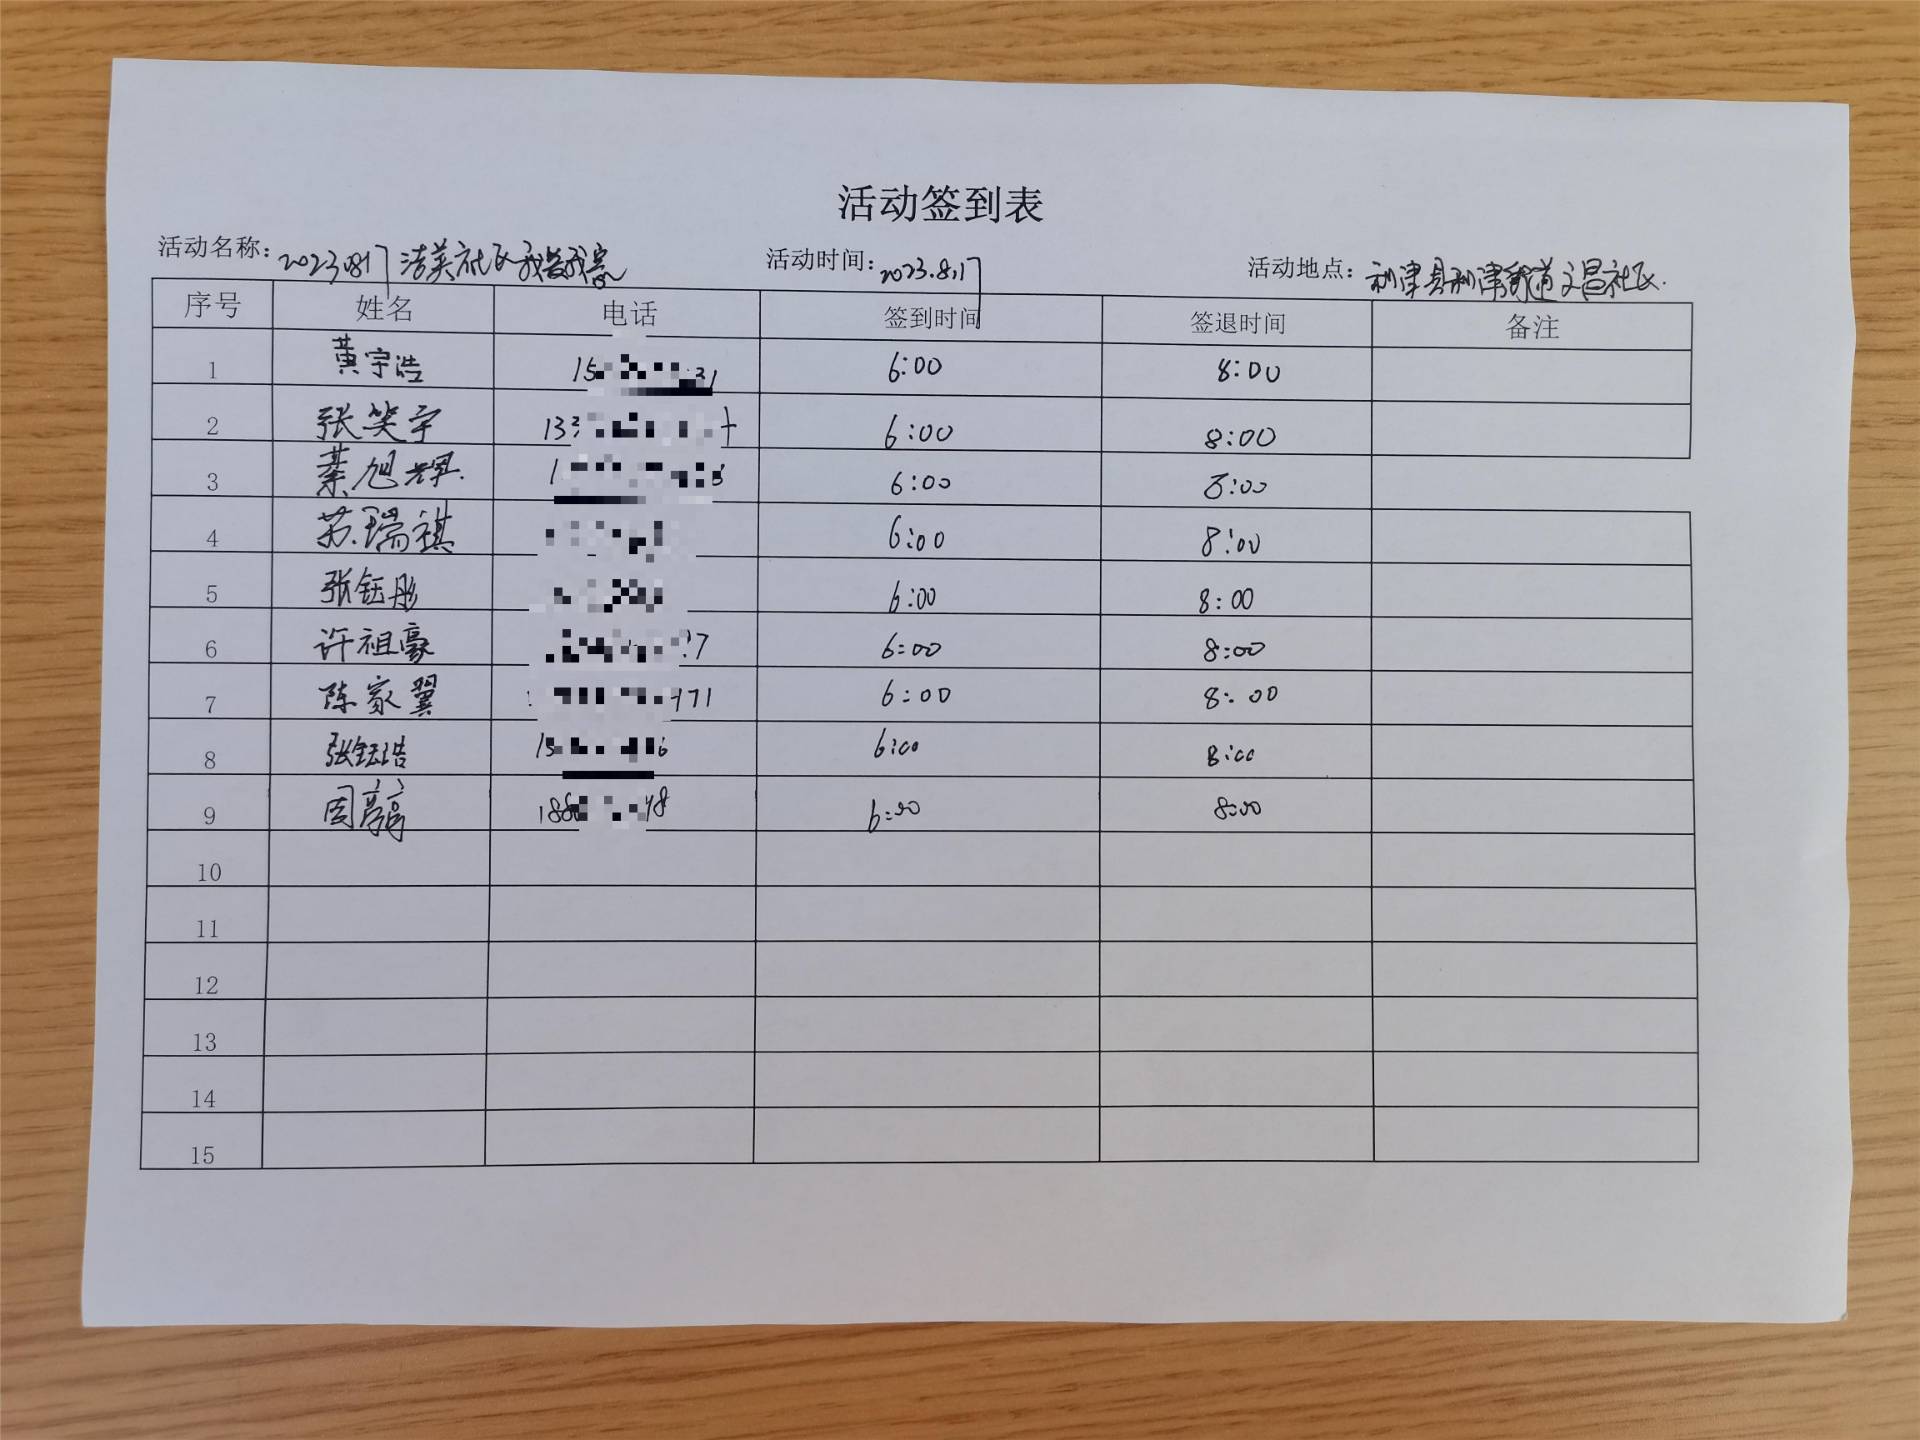 活动签到表
活动名称：20230817洁美社区 活动时间：2023.8.17 活动地点：利津县利津街道文昌社区.
序号 姓名 电话 签到时间 签退时间 备注
1 黄宇浩 15 31 6:00 8:00
2 张笑宇 133 6:00 8:00
3 綦旭辉. 1 6:00 8:00
4 苏瑞祺 6:00 8:00
5 张钰彤 6:00 8:00
6 许祖豪 7 6:00 8:00
7 陈家翼 171 6:00 8:00
8 张钰浩 15 6 6:00 8:00
9 周 188 48 6:00 8:00
10
11
12
13
14
15